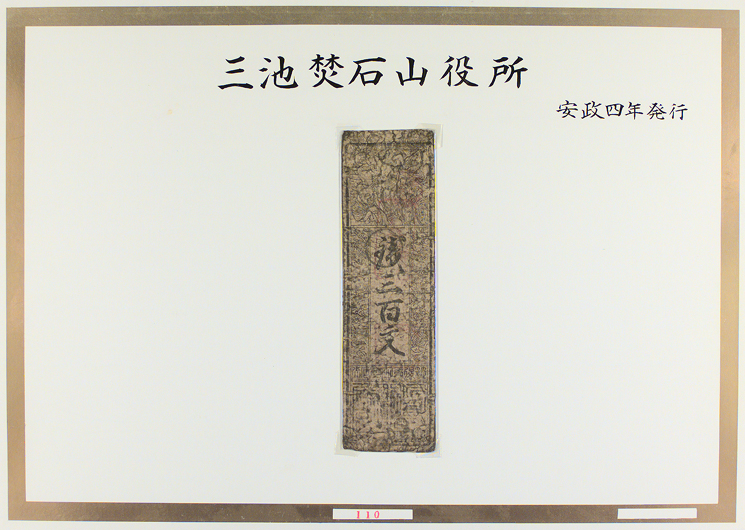 三池焚石山役所
安政四年発行
銭三百文
110